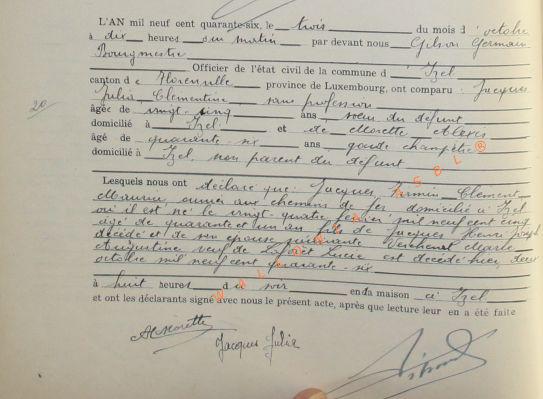 L'AN mil neuf cent quarante-six, le trois du mois d'octobre
à dix heures du matin par devant nous Gilson Germain
Bourgmestre
Officier de l'état civil de la commune d' Izel
canton de Florenville province de Luxembourg, ont comparu : Jacques
Julia Clementine, sans profession
20
âgée de vingt-cinq ans soeur du défunt
domicilié à Izel et de Morette Alexis
âgé de quarante-six ans garde champêtre
domicilié à Izel, non parent du défunt
Lesquels nous ont déclaré que: Jacques, Firmin Clement
Maurice, ouvrier aux chemins de fer domicilié à Izel
où il est né le vingt-quatre février mil neuf cent cinq
âgé de quarante et un an fils de Jacques Henri Joseph
décédé et de son épouse survivante Marie
Augustine veuf de Lucie est décédé hier, deux
octobre mil neuf cent quarante-six
à huit heures du soir en sa maison à Izel
et ont les déclarants signé avec nous le présent acte, après que lecture leur en a été faite
Al Morette
Jacques Julia